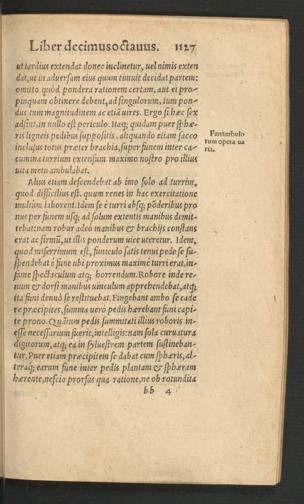 Liber decimusoctauus. 1127
ut tardius extendat donec inclinetur, uel nimis exten
dat, ut in aduersam eius quem timuit decidat partem:
omitto quòd pondera rationem certam, aut ei pro-
pinquam obtinere debent, ad singulorum, tum pon-
dus tum magnitudinem ac etiã uires. Ergo si hæc sex
adsint, in nullo est periculo. Itaq; quidam puer sphæ-
ris ligneis pedibus suppositis, aliquando etiam sacco
inclusus totus præter brachia, super funem inter ca-
cumina turrium extensum maximo nostro pro illius
uita metu ambulabat.
Funambulo
rum opera ua
ria.
Alius etiam descendebat ab imo solo ad turrim,
quod difficilius est, quum renes in hac exercitatione
multũm laborent. Idem se è turri absq; põderibus pro
nus per funem usq; ad solum extentis manibus demit-
tebat: nam robur adeò manibus & brachijs constans
erat ac firmũ, ut illis ponderum uice uteretur. Idem,
quod miserrimum est, funiculo satis tenui pede se su-
spendebat è fune ubi proximus maximè turri erat, in-
fime spectaculum atq; horrendum. Robore inde re-
num & dorsi manibus uinculum apprehendebat, atq;
ita funi denuò se restituebat. Fingebant ambo se cade
re præcipites, summa uerò pedis hærebant funi capi-
te prono. Quãtum pedis summitati illius roboris in-
esse necessarium fuerit, intelligis: nam sola curuatura
digitorum, atq; ea in syluestrem partem sustineban-
tur. Puer etiam præcipitem se dabat cum sphæris, al-
teraq; earum fune inter pedis plantam & sphæram
hærente, nescio prorsus qua ratione, ne ob rotundita
bb 4